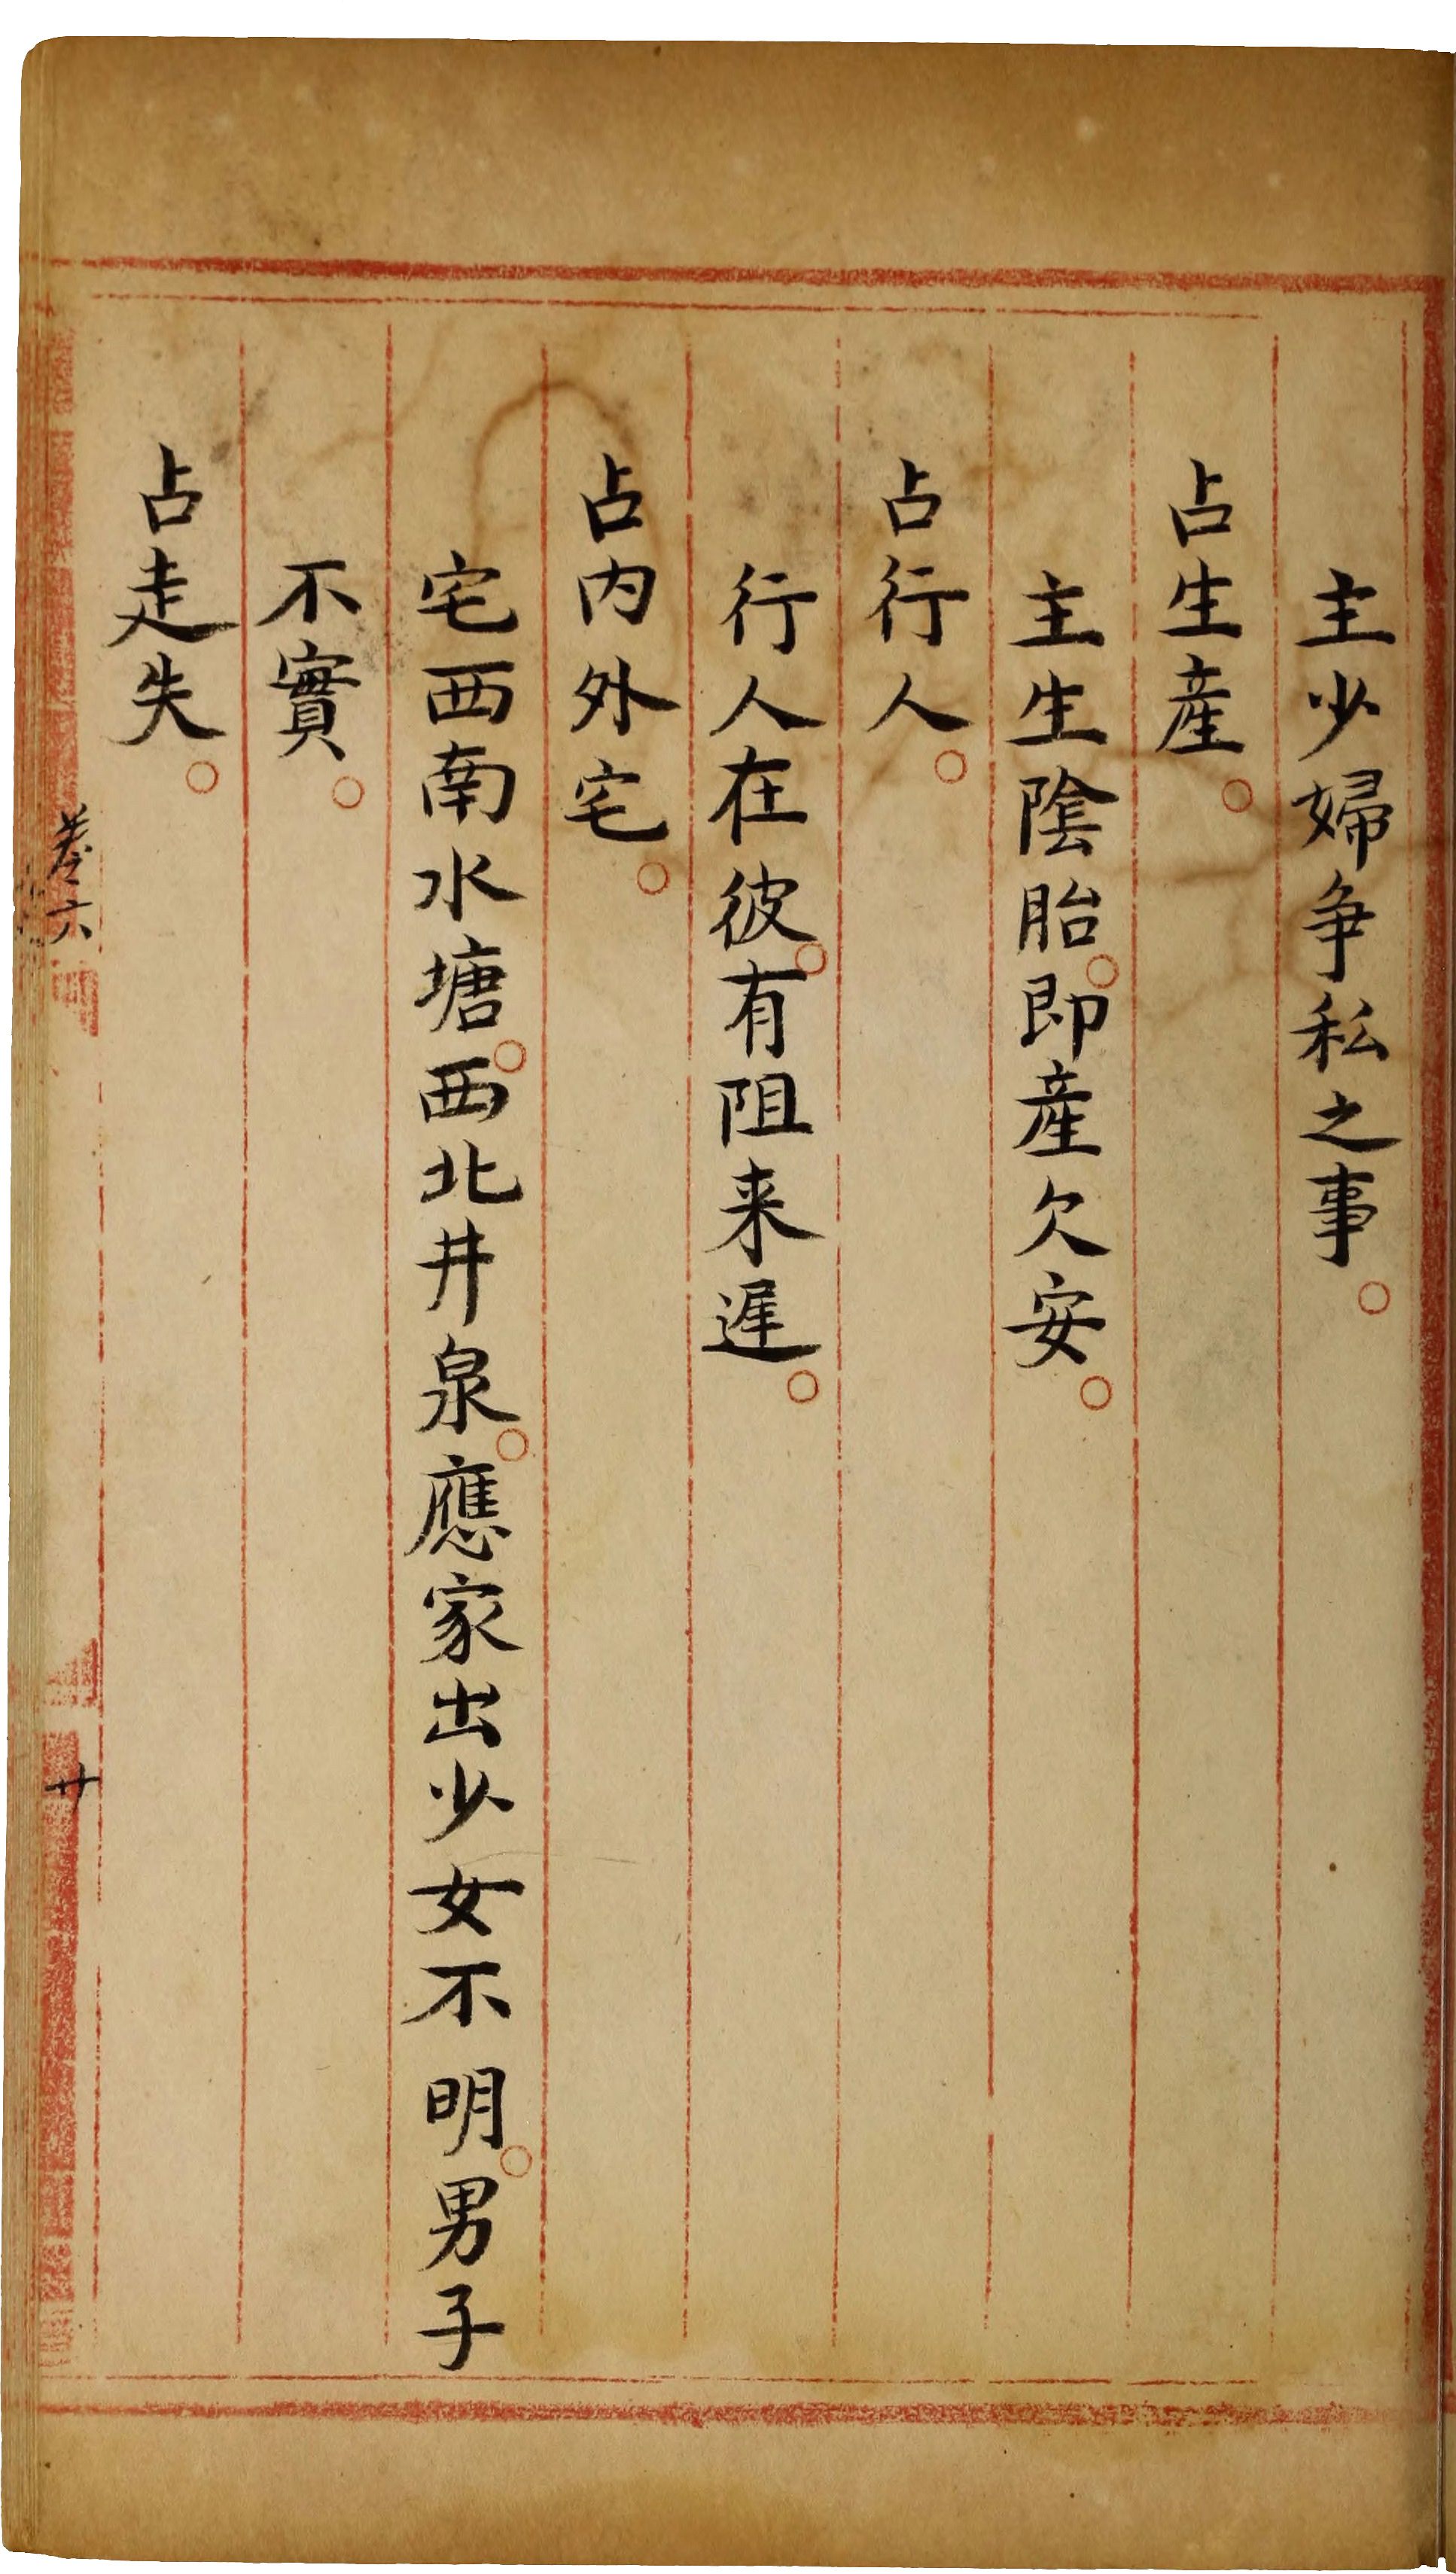 主少婦争私之事。
占生産。
主生陰胎。即產欠安。
占行人。
行人在彼。有阻来遲。
占内外宅。
宅西南水塘。西北井泉。應家出少女不明。男子
不實。
占走失。
卷六
廿